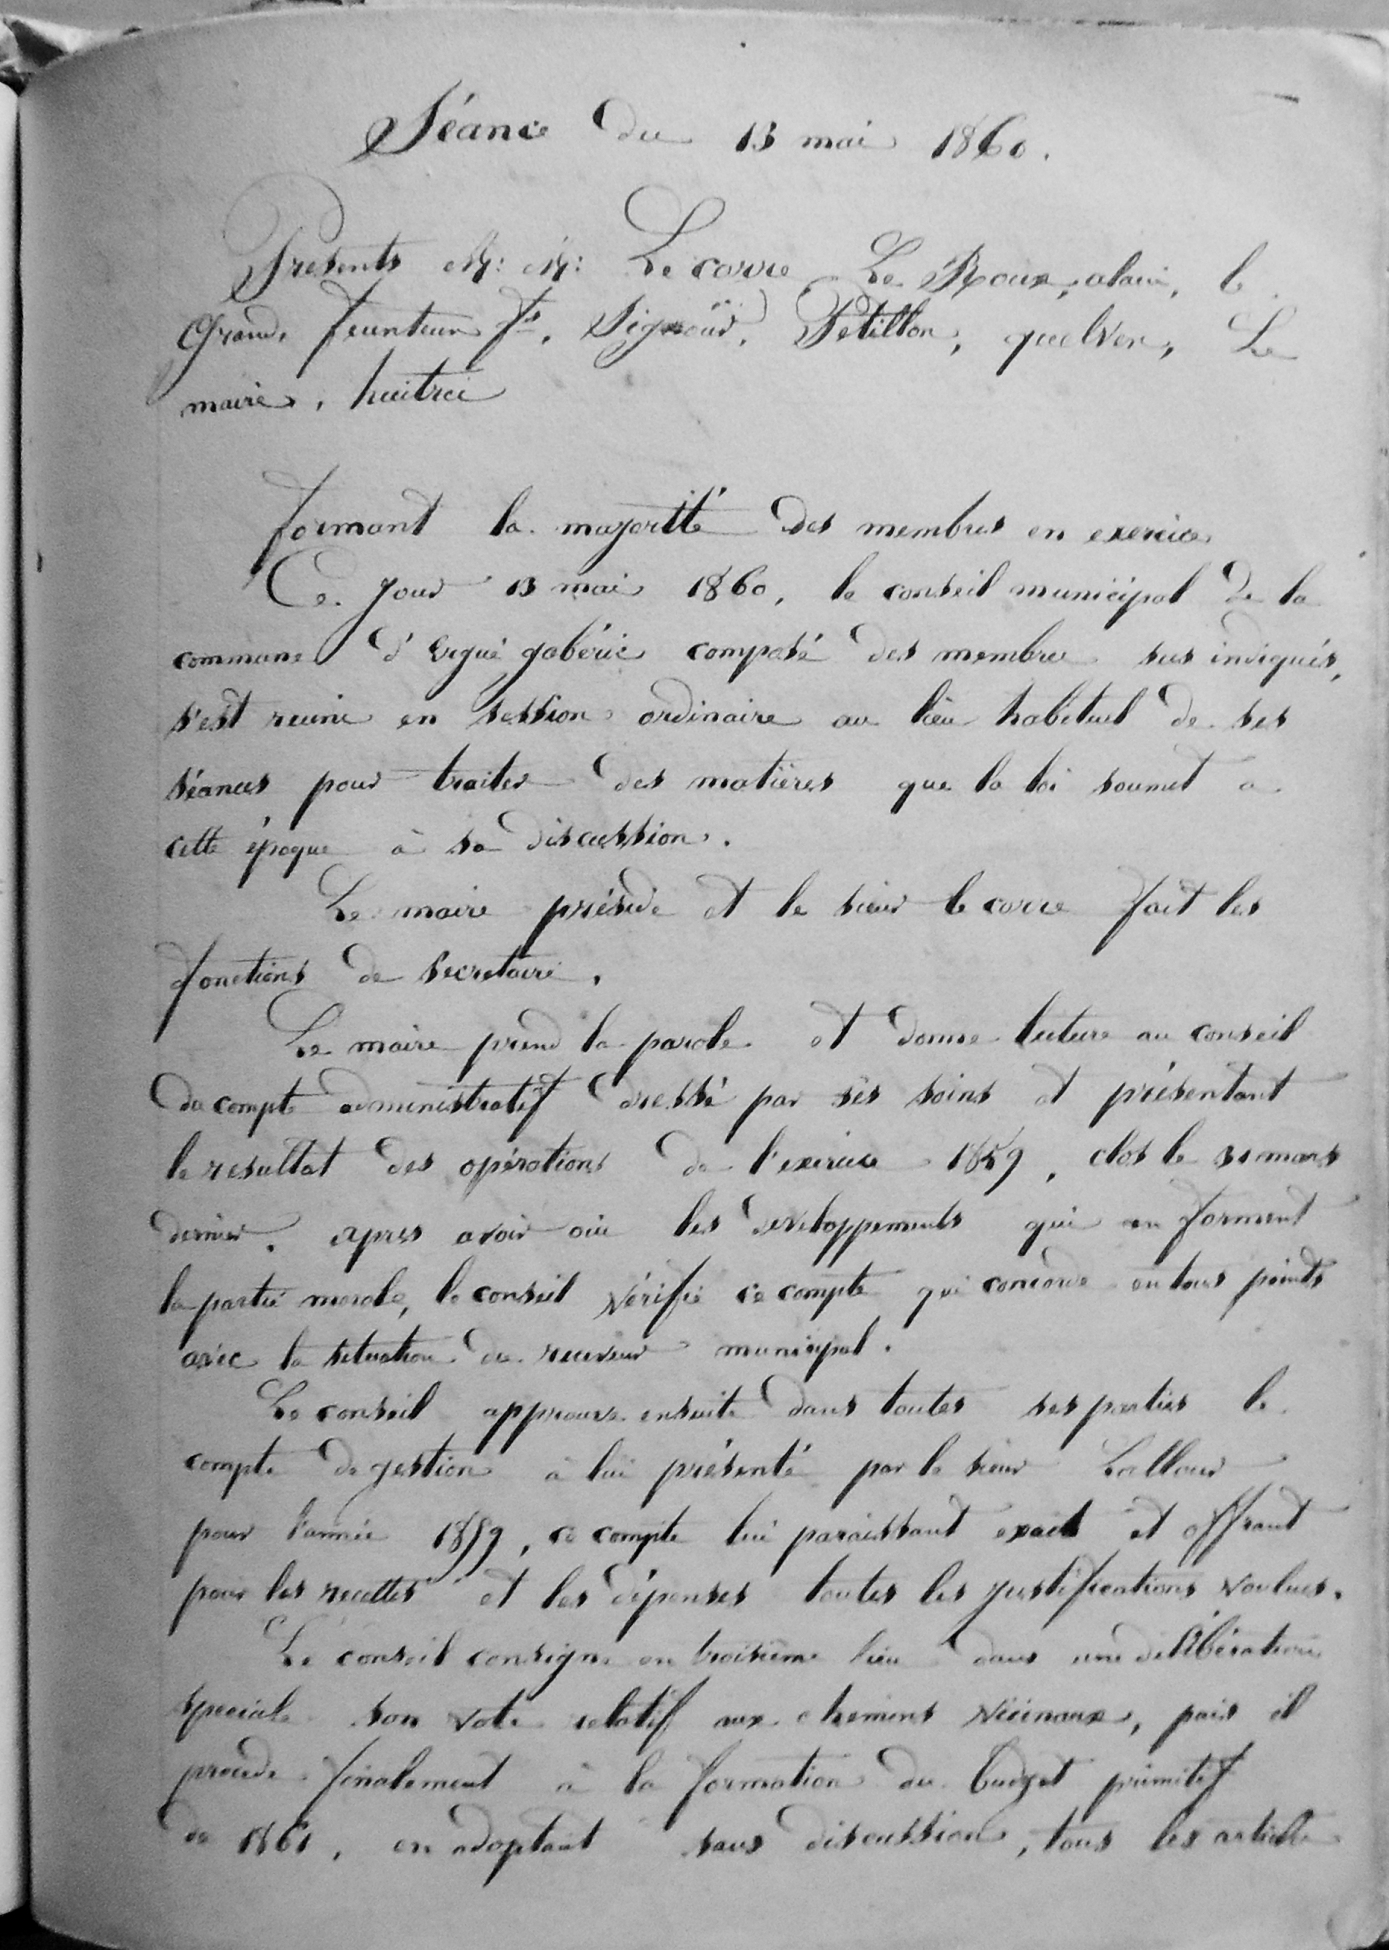 Séance du 13 mai 1860.
Presents M: M: Le corre Le Roux, alain, le
Grand, feunteun fs, Signour, Petillon, quelven, Le
maire, huitric
formant la majorité des membres en exercice
Ce jour 13 mai 1860, le conseil municipal de la
commune d'Ergué gabéric composé des membres sus indiqués,
s'est reuni en session ordinaire au lieu habituel de ses
séances pour traiter des matières que la loi soumet à
cette époque à sa discussion.
Le maire préside et le sieur le corre fait les
fonctions de secretaire.
Le maire prend la parole et donne lecture au conseil
du compte administratif dressé par ses soins et présentant
le resultat des opérations de l'exercice 1859, clos le 31 mars
dernier. apres avoir oui les developpements qui en forment
la partie morale, le conseil vérifie ce compte qui concorde en tous points
avec la situation du receveur municipal.
Le conseil approuve ensuite dans toutes ses parties le
compte de gestion à lui présenté par le sieur Lallour
pour l'année 1859, ce compte lui paraissant exact et offrant
pour les recettes et les dépenses toutes les justifications voulues.
Le conseil consigne en troisième lieu dans une délibération
speciale son vote relatif aux chemins vicinaux, puis il
procede finalement à la formation du budget primitif
de 1861, en adoptant sans discussion, tous les article